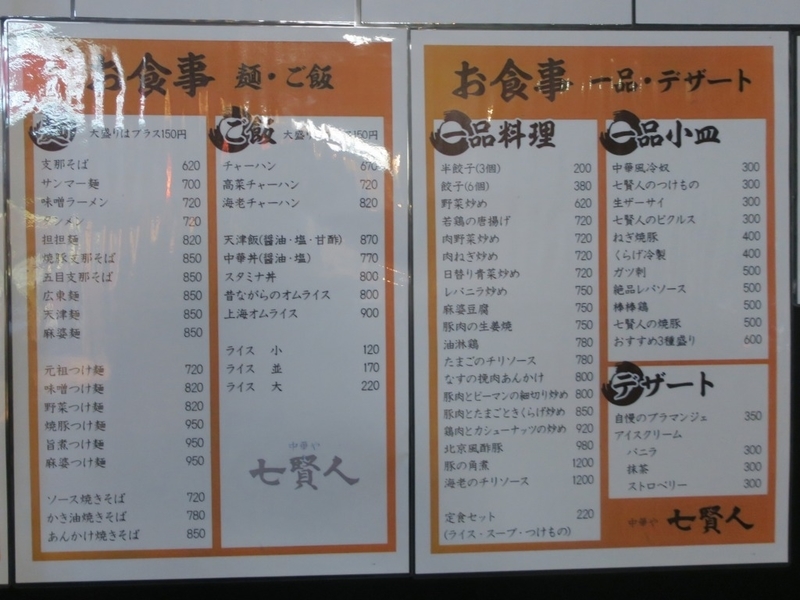 お食事 麺・ご飯
麺 大盛りはプラス150円
支那そば 620
サンマー麺 700
味噌ラーメン 720
タンメン 720
担担麺 820
焼豚支那そば 850
五目支那そば 850
広東麺 850
天津麺 850
麻婆麺 850
元祖つけ麺 720
味噌つけ麺 820
野菜つけ麺 820
焼豚つけ麺 950
旨煮つけ麺 950
麻婆つけ麺 950
ソース焼きそば 720
かき油焼きそば 780
あんかけ焼きそば 850
ご飯 大盛り 150円
チャーハン 670
高菜チャーハン 720
海老チャーハン 820
天津飯(醤油・塩・甘酢) 870
中華丼(醤油・塩) 770
スタミナ丼 800
昔ながらのオムライス 800
上海オムライス 900
ライス 小 120
ライス 並 170
ライス 大 220
中華や
七賢人
お食事 一品・デザート
一品料理
半餃子(3個) 200
餃子(6個) 380
野菜炒め 620
若鶏の唐揚げ 720
肉野菜炒め 720
肉ねぎ炒め 720
日替り青菜炒め 720
レバニラ炒め 750
麻婆豆腐 750
豚肉の生姜焼 750
油淋鶏 780
たまごのチリソース 780
なすの挽肉あんかけ 800
豚肉とピーマンの細切り炒め 800
豚肉とたまごときくらげ炒め 850
鶏肉とカシューナッツの炒め 920
北京風酢豚 980
豚の角煮 1200
海老のチリソース 1200
定食セット 220
(ライス・スープ・つけもの)
一品小皿
中華風冷奴 300
七賢人のつけもの 300
生ザーサイ 300
七賢人のピクルス 300
ねぎ焼豚 400
くらげ冷製 400
ガツ刺 500
絶品レバソース 500
棒棒鶏 500
七賢人の焼豚 500
おすすめ3種盛り 600
デザート
自慢のブラマンジェ 350
アイスクリーム
バニラ 300
抹茶 300
ストロベリー 300
中華や 七賢人